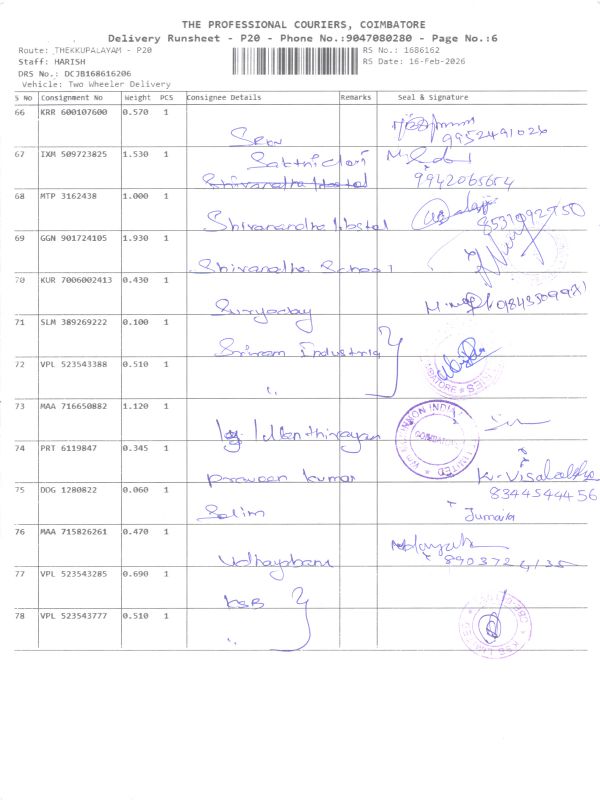 THE PROFESSIONAL COURIERS, COIMBATORE
Delivery Runsheet - P20 - Phone No.:9047080280 - Page No.:6
Route: THEKKUPALAYAM - P20
RS No.: 1686162
Staff: HARISH
RS Date: 16-Feb-2026
DRS No.: DCJB168616206
Vehicle: Two Wheeler Delivery
S No Consignment No Weight PCS Consignee Details Remarks Seal & Signature
66 KRR 600107600 0.570 1
9952491026
67 IXM 509723825 1.530 1
Shivanandha Hostel
9942065654
68 MTP 3162438 1.000 1
Shivanandha
69 GGN 901724105 1.930 1
Shivanandha School
70 KUR 7006002413 0.430 1
Suryaday
71 SLM 389269222 0.100 1
Sriram Industries
72 VPL 523543388 0.510 1
"
73 MAA 716650882 1.120 1
74 PRT 6119847 0.345 1
Praveen Kumar
K. Visalakshi
75 DDG 1280822 0.060 1
8344544456
Salim
76 MAA 715826261 0.470 1
8903724135
77 VPL 523543285 0.690 1
KSB
78 VPL 523543777 0.510 1
"